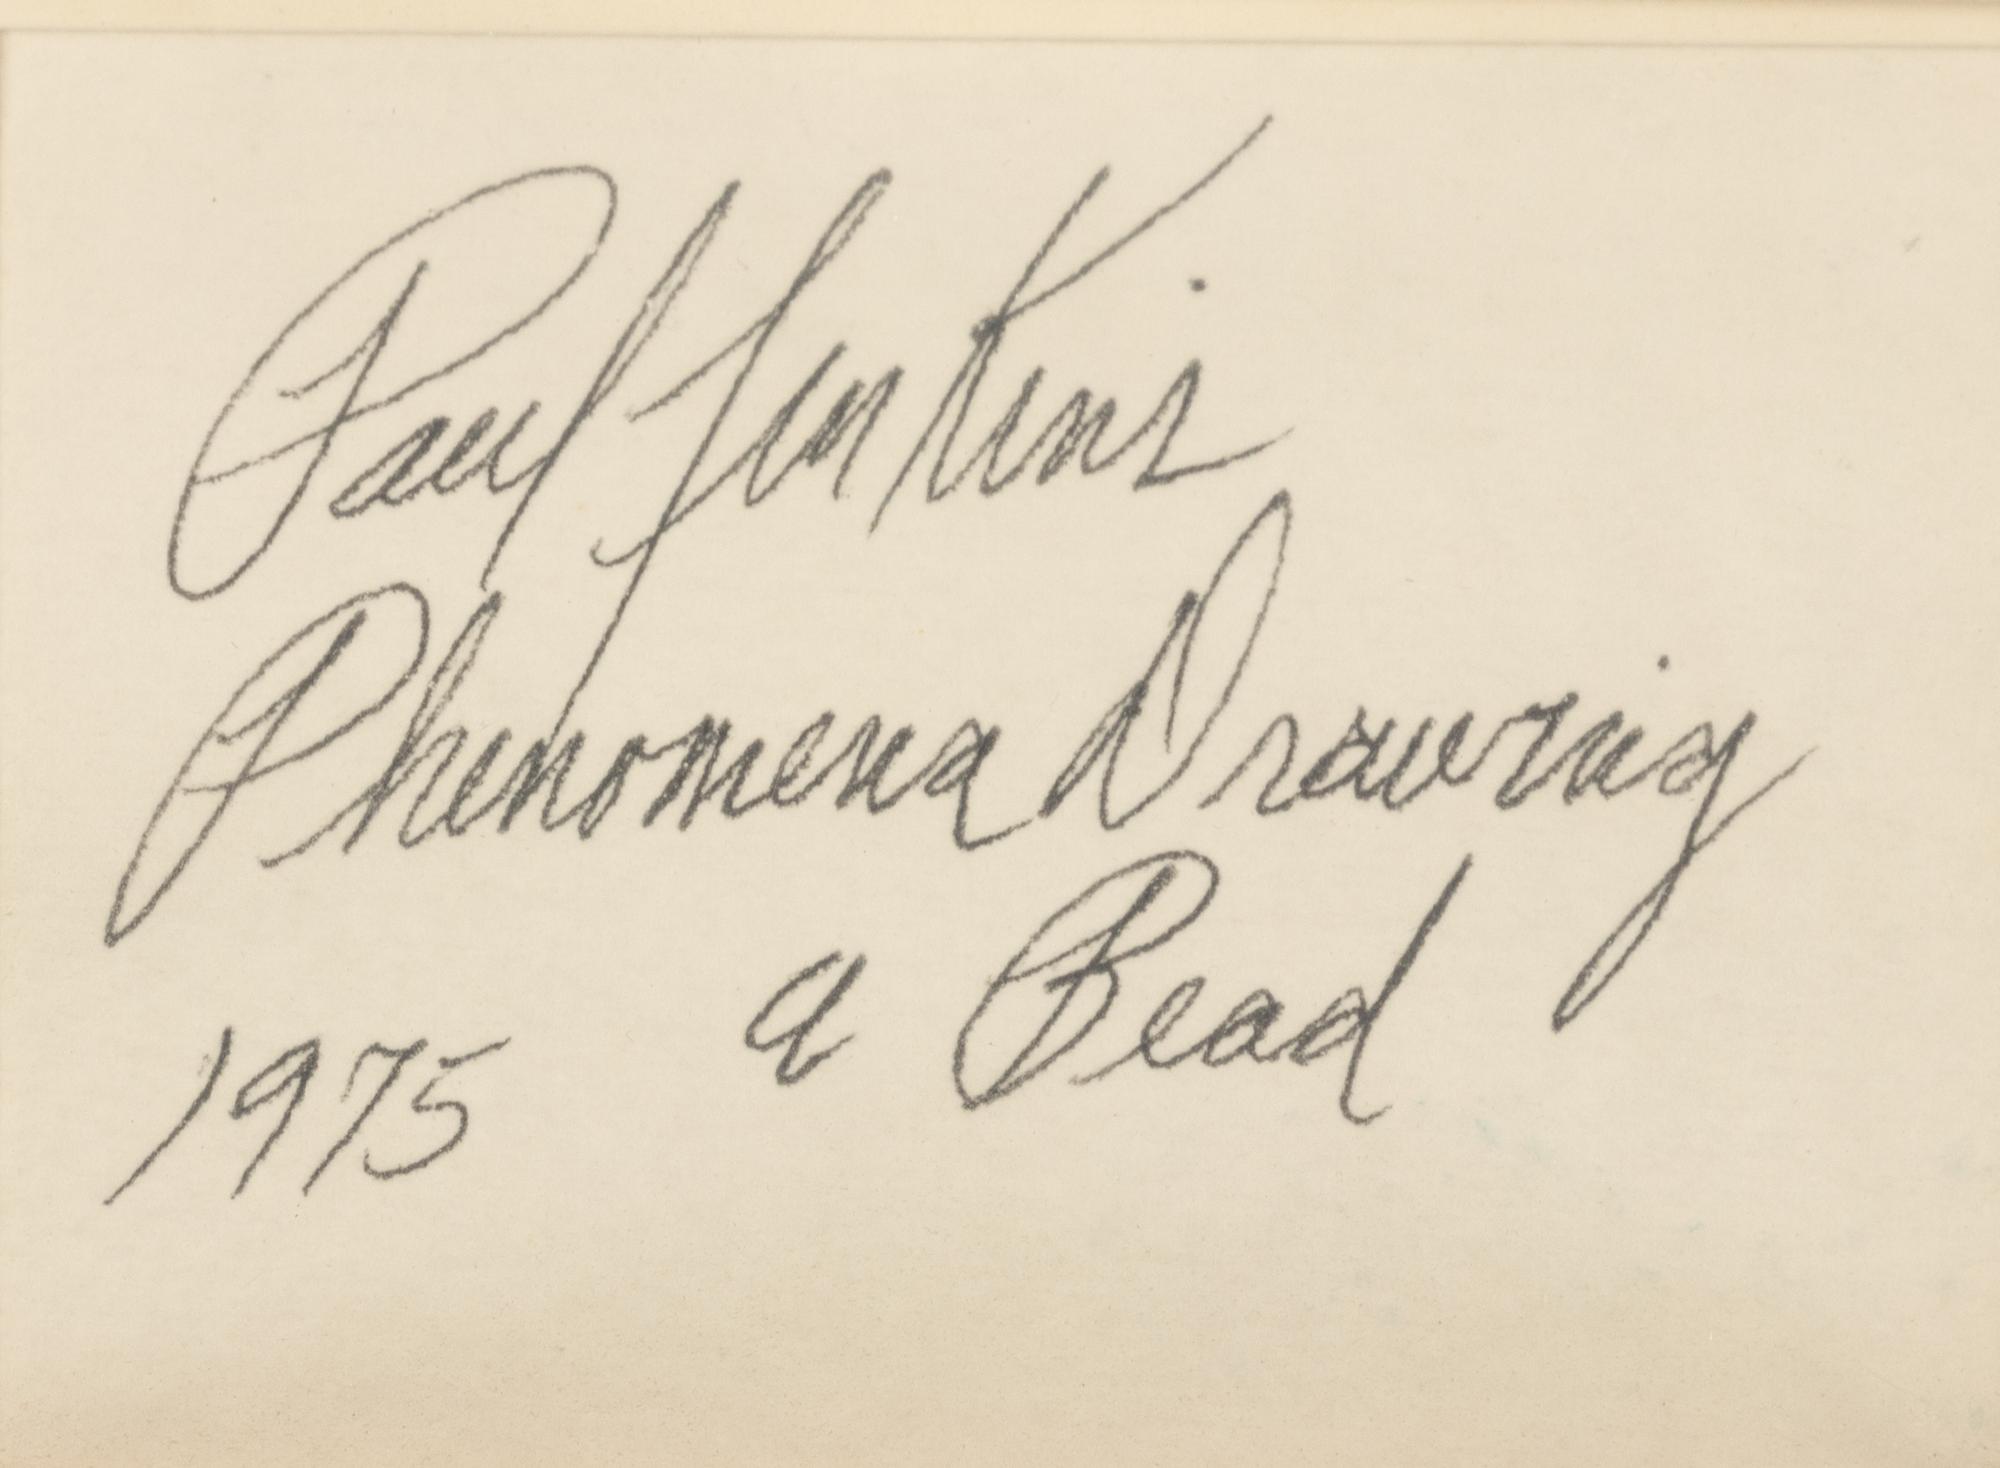 Paul Jenkins
Phenomena Drawing
a Bead
1975